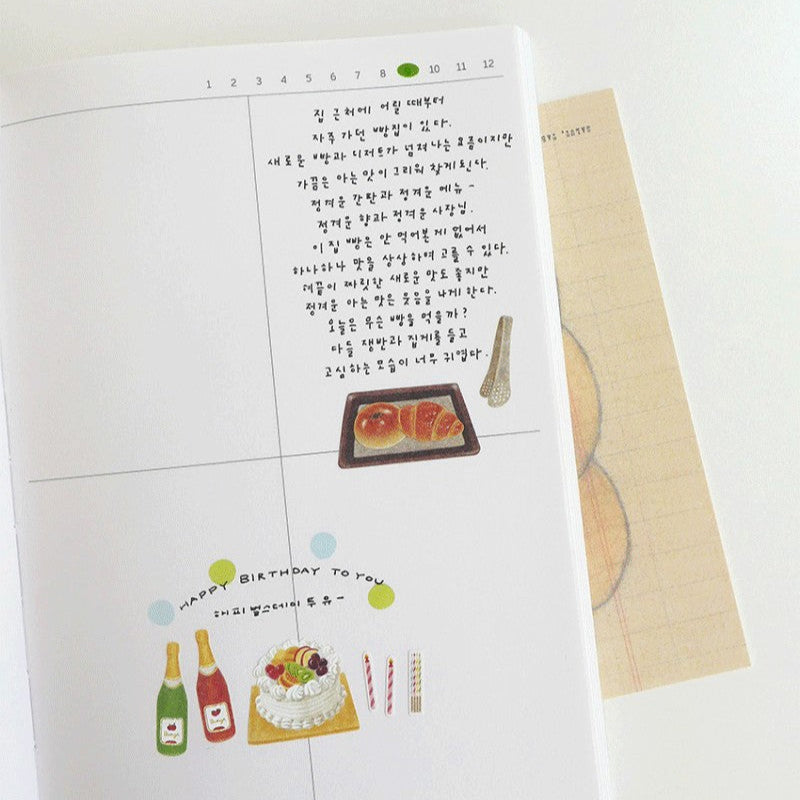 1 2 3 4 5 6 7 8 9 10 11 12
집 근처에 어릴 때부터
자주 가던 빵집이 있다.
새로운 빵과 디저트가 넘쳐나는 요즘이지만
가끔은 아는 맛이 그리워 찾게된다.
정겨운 간판과 정겨운 메뉴~
정겨운 향과 정겨운 사장님.
이 집 빵은 안 먹어본게 없어서
하나하나 맛을 상상하며 고를 수 있다.
혀끝이 짜릿한 새로운 맛도 좋지만
정겨운 아는 맛은 웃음을 나게 한다.
오늘은 무슨 빵을 먹을까?
다들 쟁반과 집게를 들고
고심하는 모습이 너무 귀엽다.
HAPPY BIRTHDAY TO YOU
해피 벌스데이 투 유~